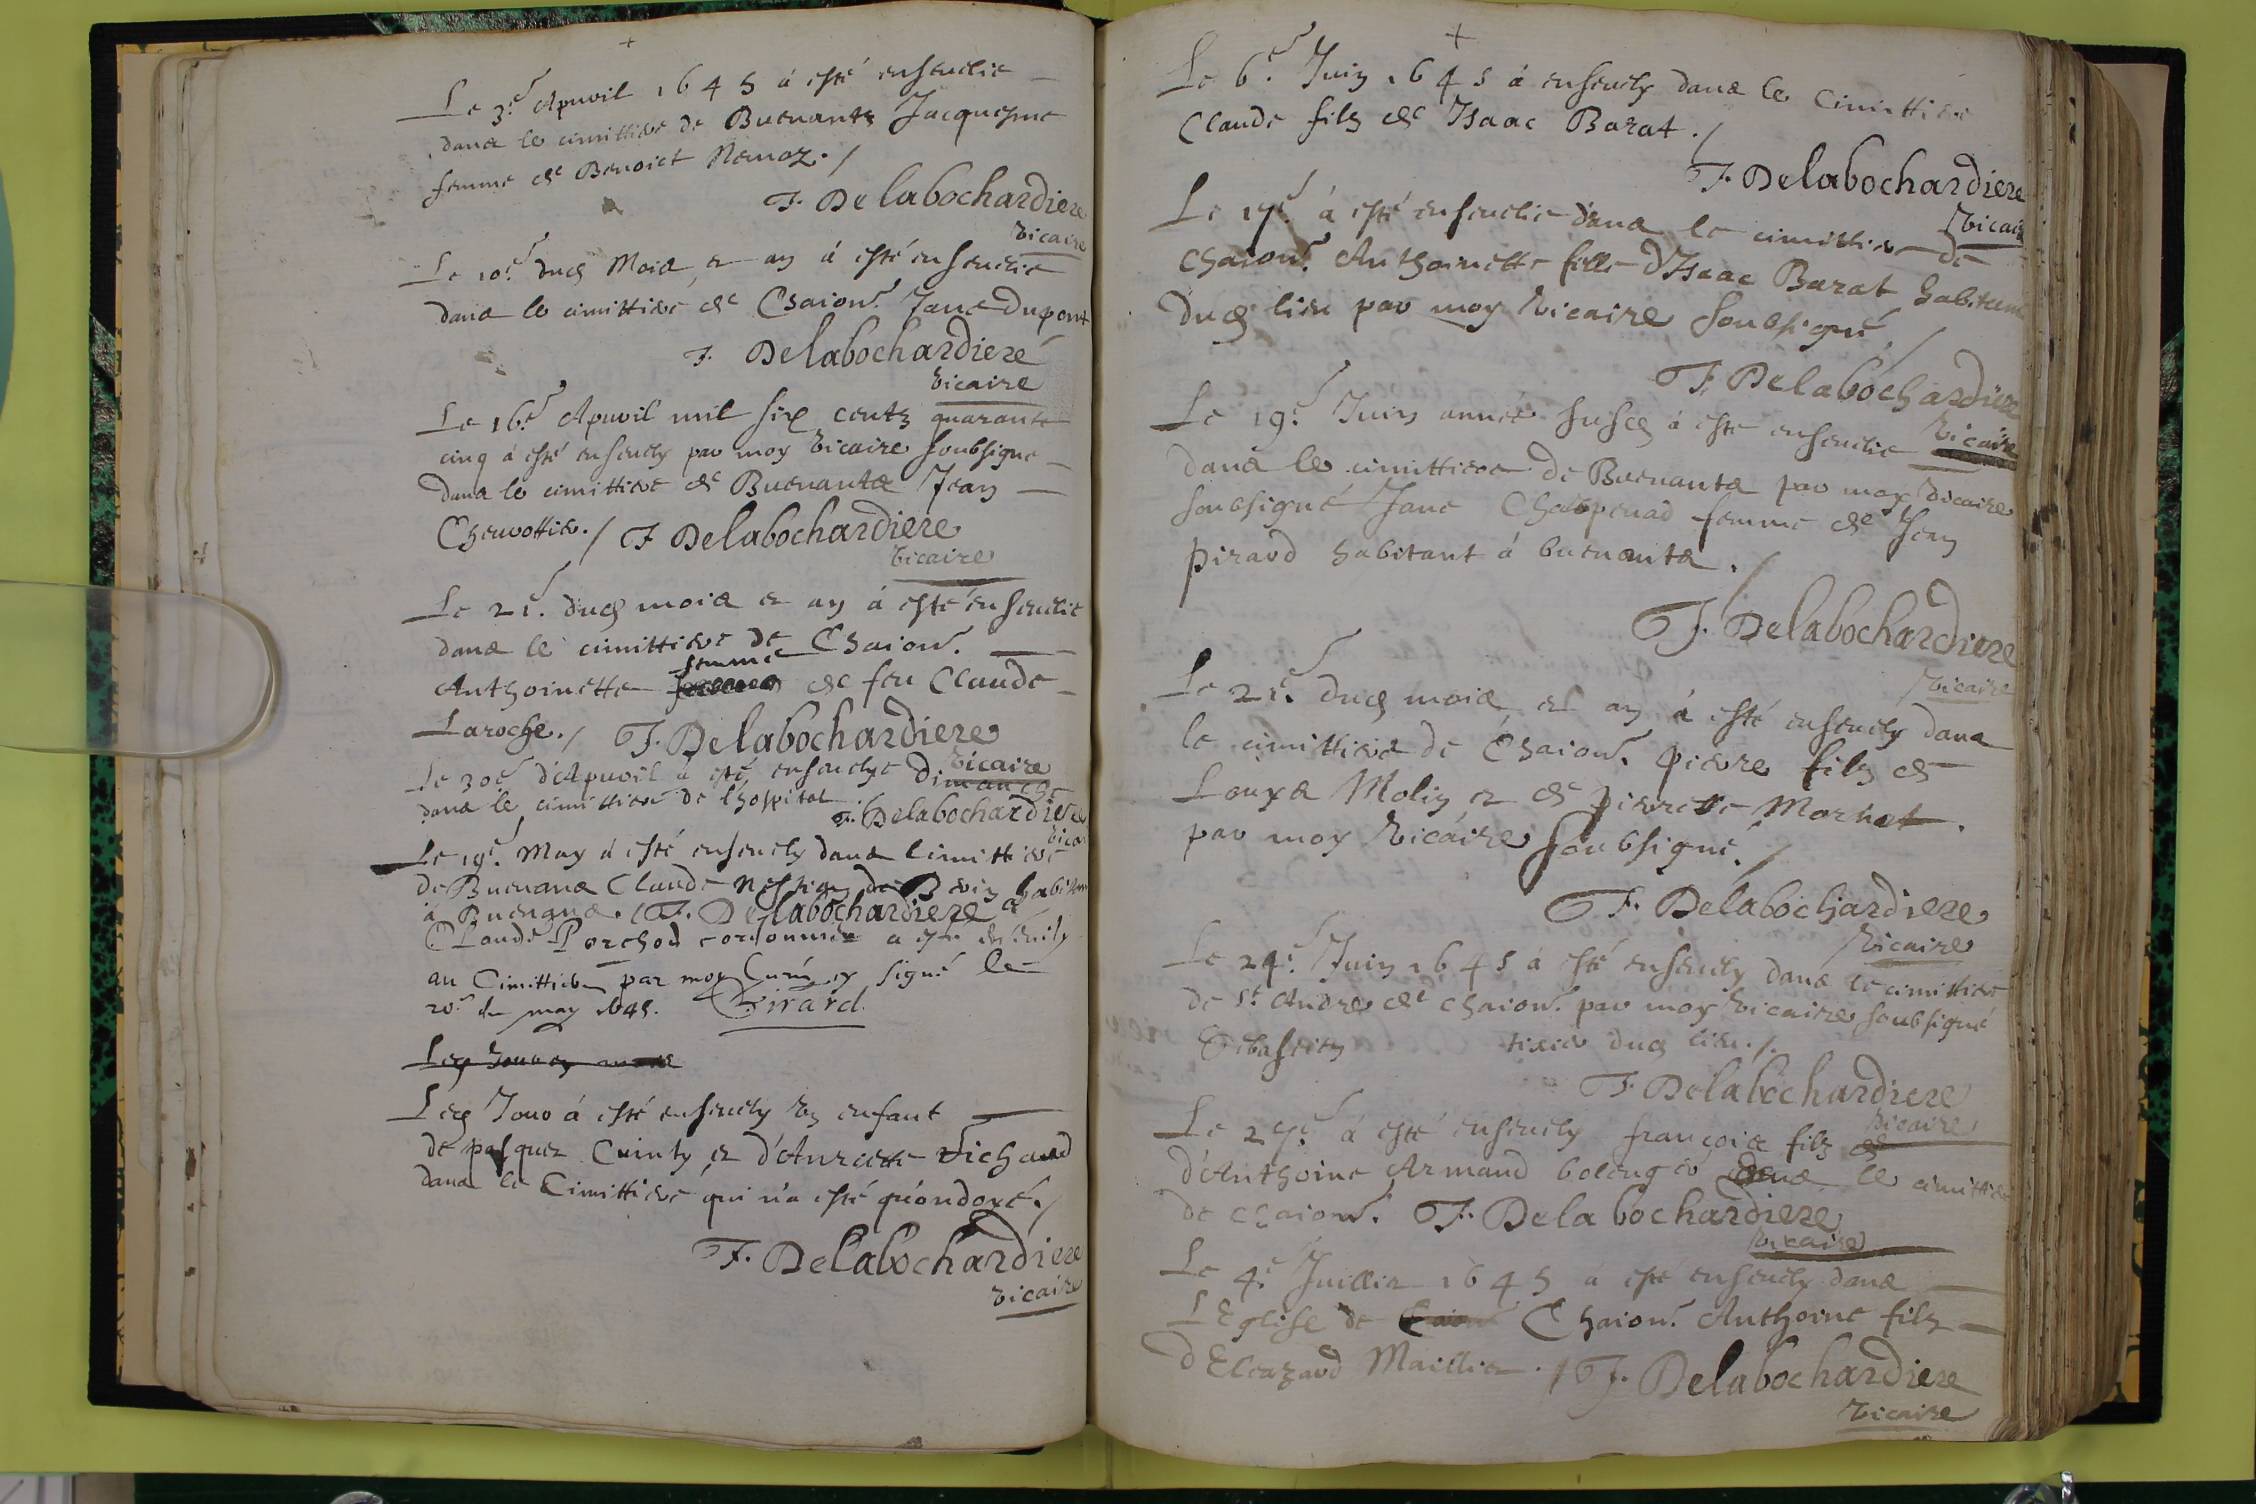 Le 3.e Apuril 1645 à esté enseuelie
dans le cimittiere de Buenants Jacquesme
femme de Benoict Nemoz ./
F. Delabochardiere
vicaire
Le 10.e dud Mois et an à esté enseuelie
dans le cimittiere de Chaion.. Jane Dupont
F. Delabochardiere
vicaire
Le 16.e Apuril mil six centz quarante
cinq à esté enseuely par moy vicaire soubsigné
dans le cimittiere de Buenants Jean
Cheurottier ./ F. Delabochardiere
vicaire
Le 21.e dud mois et an à esté enseuelie
dans le cimittiere de Chaion..
femme
Anthoinette de feu Claude
Laroche ./ F. Delabochardiere
vicaire
Le 30.e d'Apuril à esté enseuelye dimanche
dans le cimittiere de l'hospital F. Delabochardiere
vicai
Le 19.e May à esté enseuely dans Cimittiere
de Buenans Claude de habitant
à F. Delabochardiere
Claude Porchod cordonnier a esté enseuely
au Cimittiere par moy Curé signé le
20.e de may 1645. Girard
Led Jour à esté enseuely vn enfant
de pasquet Cuinty et d'Anriette Vichaud
dans le Cimittiere qui n'a esté qu'ondoyé ./
F. Delabochardiere
vicaire
Le 6.e Juin 1645 à enseuely dans le Cimittiere
Claude filz de Isaac Barat ./
F. Delabochardiere
vicaire
Le 17.e à esté enseuelie dans le cimittiere de
Chaion.. Anthoinette fille d'Isaac Barat habitant
dud lieu par moy vicaire soubsigné ./
F. Delabochardiere
vicaire
Le 19.e Juin année susd à esté enseuelie
dans le cimittiere de Buenants par moy vicaire
soubsigné Jane femme de Jean
Piraud habitant à buenants ./
F. Delabochardiere
vicaire
Le 21.e dud mois et an à esté enseuely dans
le cimittiere de Chaion.. Pierre filz de
Louys Molin et de Pierrette Mornet.
par moy vicaire soubsigné ./
F. Delabochardiere
vicaire
Le 24.e Juin 1645 à esté enseuely dans le cimittiere
de St. André de chaion.. par moy vicaire soubsigné
Sebastien tixier dud lieu ./.
F. Delabochardiere
vicaire
Le 27.e à esté enseuely françois filz
d'Anthoine Armand bolenger dans le cimittiere
de chaion.. F. Delabochardiere
vicaire
Le 4.e Juillet 1645 à esté enseuely dans
L'Eglise de Chaion.. Anthoine filz
d'Eleazard Maillet ./ F. Delabochardiere
vicaire